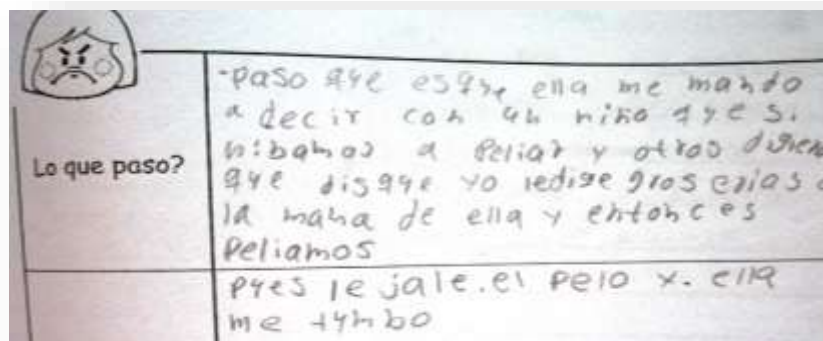 Lo que paso?
-paso que esque ella me mando
a decir con un niño que si
nibamos a peliar y otros dijeron
que disque yo ledije groserias a
la mama de ella y entonces
Peliamos
pues le jale.el pelo y. ella
me tumbo